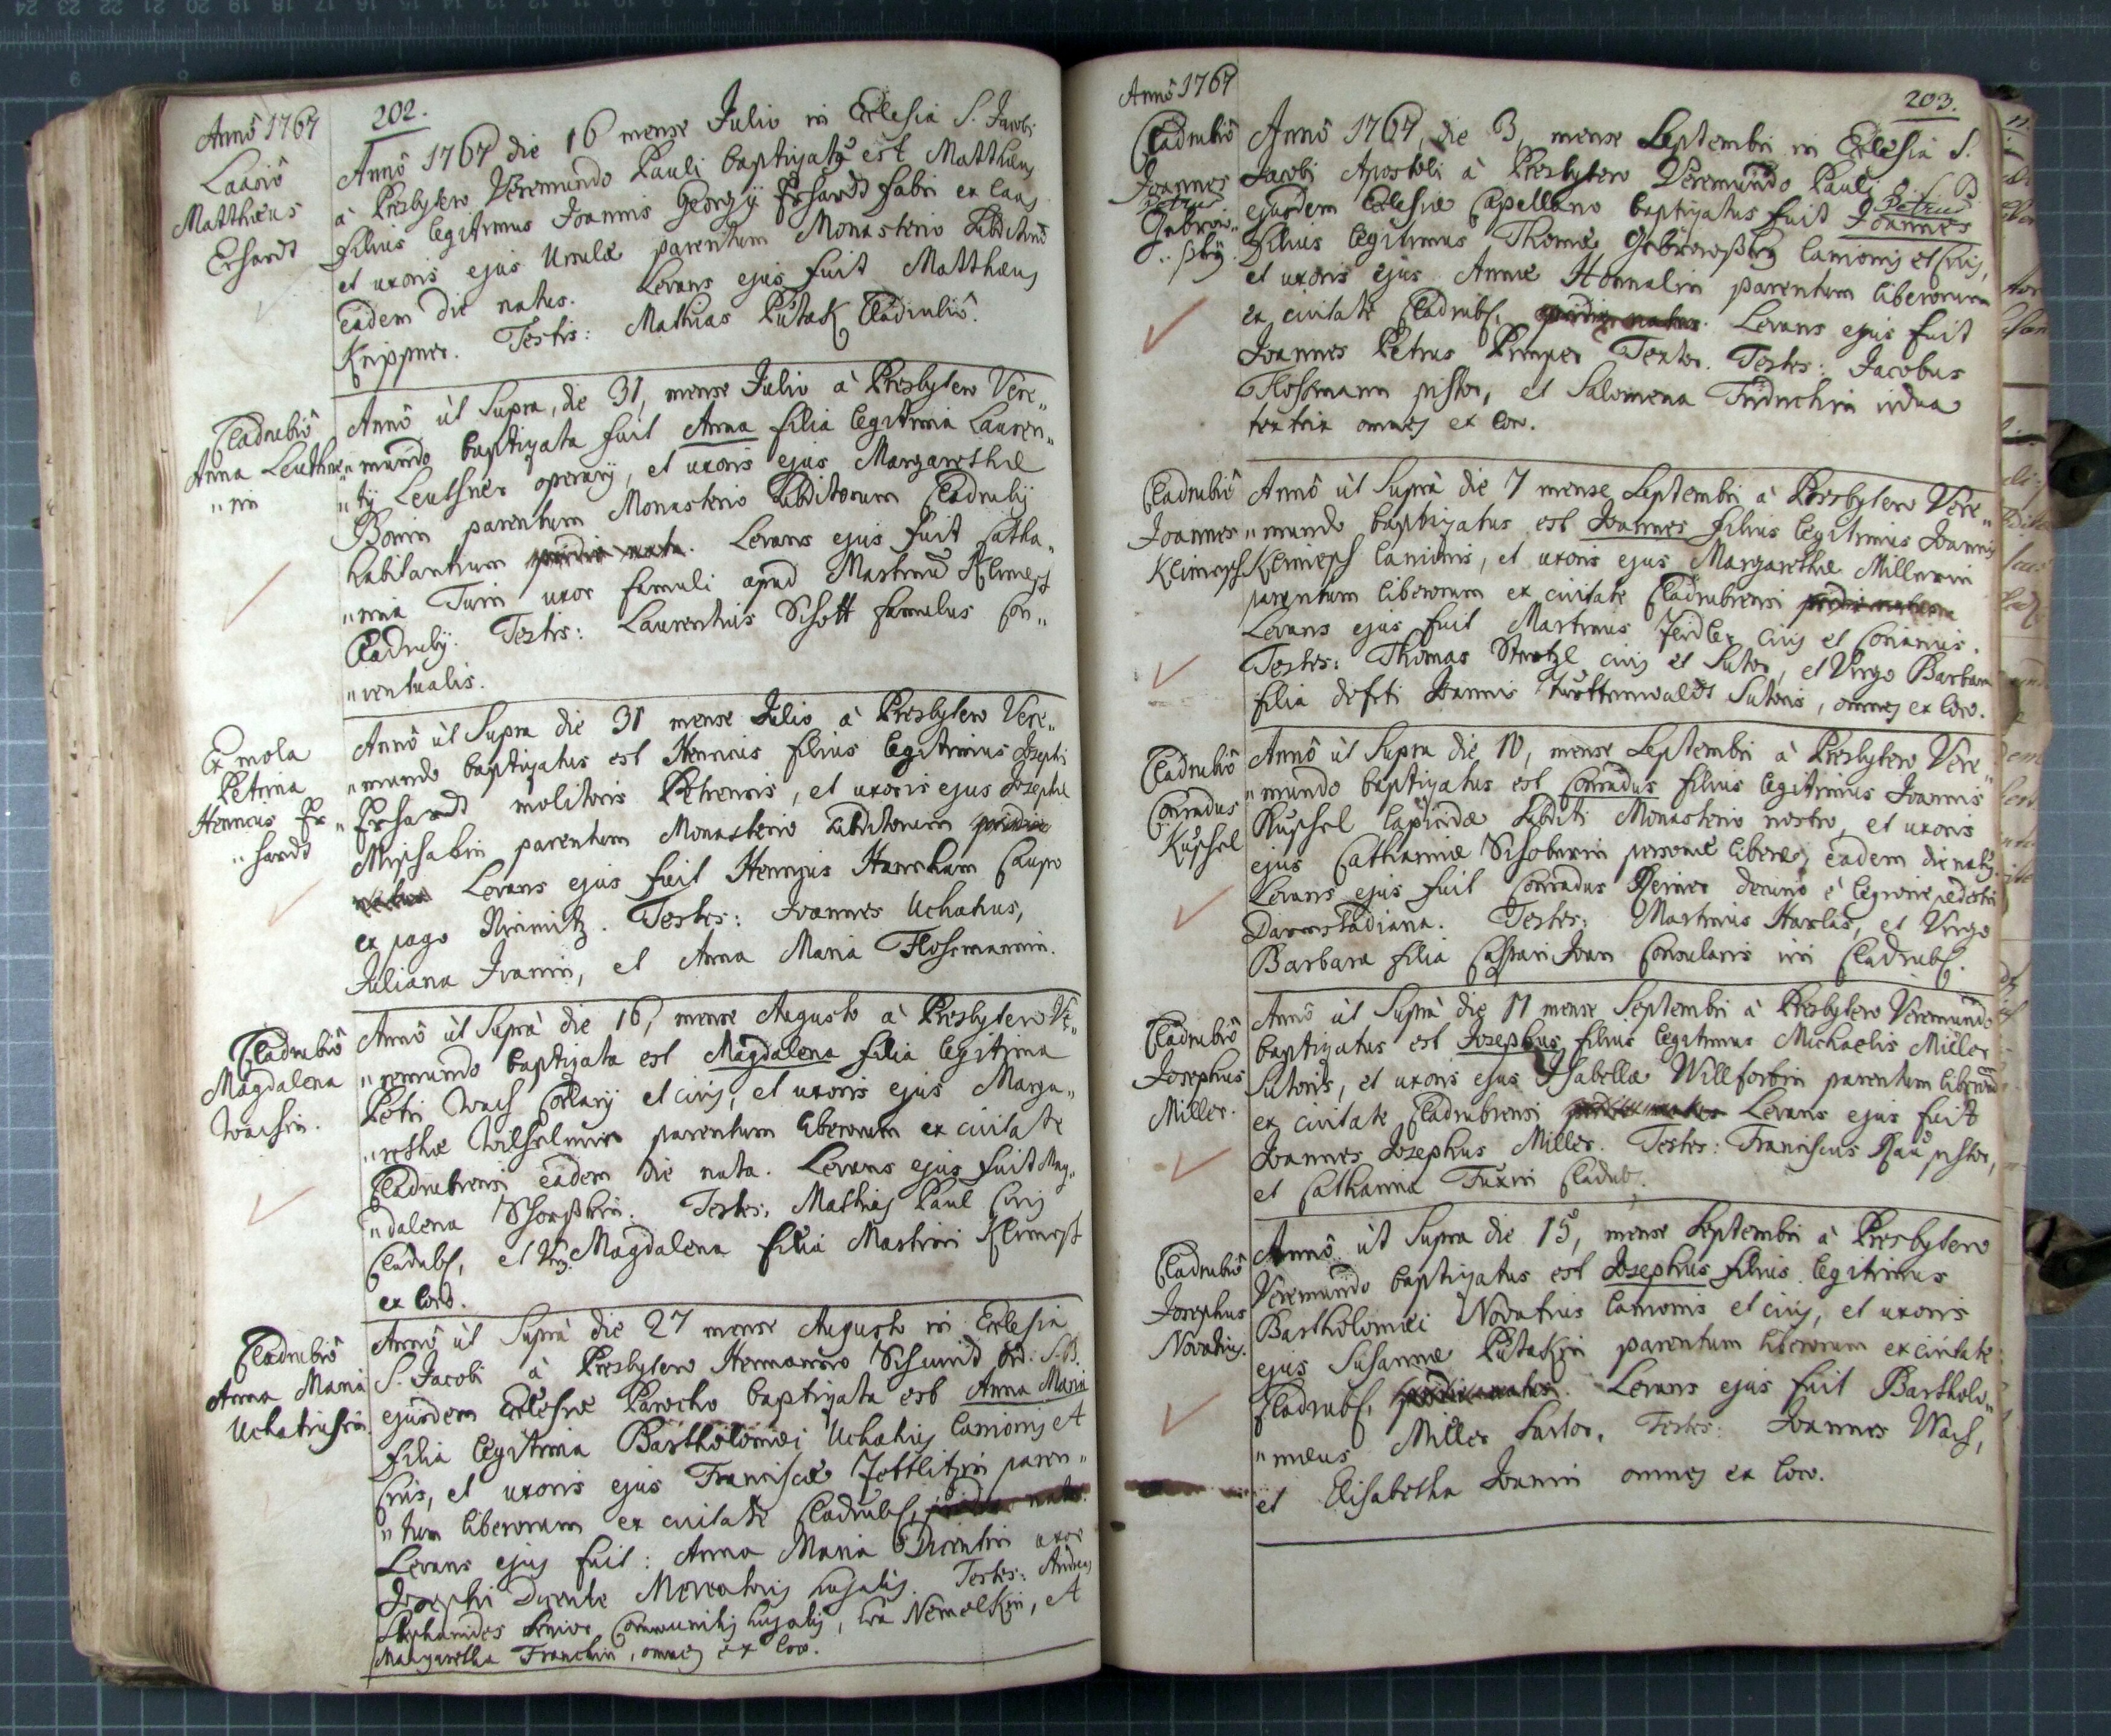 Annô 1767
202.
Laasiô
Matthæus
Erhardt
Annô 1767 die 16 mense Julio in Ecclesia S. Jacobi
à Presbytero Veremundo Pauli baptizatus est Matthæus
filius legitimus Joannis Georgÿ Erhardt fabri ex Laas
et uxoris ejus Ursulæ parentum Monasterio subditorum
eadem die natus. Levans ejus fuit Matthæus
Knippner. Testis: Mathias Putak Cladrubiô.
Cladrubiô
Anna Leuthne„
„rin
Annô ùt Supra, die 31, mense Julio à Presbytero Vere„
„mundo baptizata fuit Anna filia legitima Lauren„
„tÿ Leuthner operarÿ, et uxoris ejus Margarethæ
Bonin parentum Monasterio subditorum Cladrubÿ
habitantium pridie nata. Levans ejus fuit Catha„
„rina Turin uxor famuli apud Martinum Klimesch
Cladrubÿ. Testis: Laurentius Schott famulus Con„
„ventualis.
Ex mola
Petrina
Henricus Er„
„hardt
Annô ùt Supra die 31 mense Julio à Presbytero Vere„
„mundo baptizatus est Henricus filius legitimus Josephi
Erhardt molitoris Petrensis, et uxoris ejus Josephæ
parentum Monasterio subditorum pridie
natus Levans ejus fuit Henricus Caupo
ex pago. Testes: Joannes Uchatius,
Juliana Joanin, et Anna Maria Flossmannin.
Cladrubiô
Magdalena
Wachin.
Annô ùt Suprà die 16, mense Augusto à Presbytero Ve„
„remundo baptizata est Magdalena filia legitima
Petri Wach et civis, et uxoris ejus Marga„
„rethæ Wilhelmin parentum liberorum ex civitate
Cladrubensi eâdem die nata. Levans ejus fuit Mag„
„dalena. Testes: Mathias Paul Civis
Cladrub, et Virg. Magdalena filia Martini Klimesch
ex loco.
Cladrubiô
Anna Maria
Uchatiusin
Annô ùt Suprà die 27 mense Augusto in Ecclesia
S. Jacobi à Presbytero Hermanno Schmid Ord. S.B.
ejusdem Ecclesiæ Parocho baptizata est Anna Maria
filia legitima Bartholomæi Uchatius Lanionis et
Civis, et uxoris ejus Franciscæ paren„
„tum liberorum ex civitate Cladrub, pridie nata
Levans ejus fuit: Anna Maria Ducentin uxor
Josephi Mercatoris hujatis. Testes: Andreas
Stephanides senior Communitatis hujatis, Nemelkin, et
Margaretha Franckin, omnes ex loco.
Annô 1767
203.
Cladrubiô
Joannes
Petrus
Annô 1767, die 3, mense Septembri in Ecclesia S.
Jacobi Apostoli à Presbytero Veremundo Pauli O.S.B
ejusdem Ecclesiæ Capellano baptizatus fuit Joannes Petrus
filius legitimus Thomæ Lanionis et Civis,
et uxoris ejus Annæ parentum liberorum
ex civitate Cladrub, pridie natus. Levans ejus fuit
Joannes Petrus Textor. Testes: Jacobus
Flossmann pistor, et Salomena vidua
textrix omnes ex loco.
Cladrubiô
Joannes
Klimesch
Annô ùt Suprà die 7 mense Septembri à Presbytero Vere„
„mundo baptizatus est Joannes filius legitimus Joannis
Klimesch Lanionis, et uxoris ejus Margarethæ Millerin
parentum liberorum ex civitate Cladrubensi pridie natus
Levans ejus fuit Martinus Zeidler civis et Coriarius.
Testes: Thomas civis et Sutor, et Virgo Barbara
filia defcti Joannis Sutoris, omnes ex loco.
Cladrubiô
Conradus
Kuschel
Annô ùt Supra die 10, mense Septembri à Presbytero Vere„
„mundo baptizatus est Conradus filius legitimus Joannis
Kuschel lapicidæ subditi Monasterio nostro, et uxoris
ejus Catharinæ Schoberin personæ liberæ, eadem die natus.
Levans ejus fuit Conradus Reiner è legione pedestri
Darmstadiana. Testes: Martinus Havlas, et Virgo
Barbara filia Caspari Joan Consularis viri Cladrub.
Cladrubiô
Josephus
Miller.
Annô ùt Suprà die 11 mense Septembri à Presbytero Veremundo
baptizatus est Josephus filius legitimus Michaelis Miller
Sutoris, et uxoris ejus Isabellæ Willfortin parentum liberorum
ex civitate Cladrubensi pridie natus Levans ejus fuit
Joannes Josephus Miller. Testes: Franciscus Rau pistor,
et Catharina Fuxin Cladrub.
Cladrubiô
Josephus
Novatius.
Annô ùt Supra die 15, mense Septembri à Presbytero
Veremundo baptizatus est Josephus filius legitimus
Bartholomæi Novatius Lanionis et civis, et uxoris
ejus Susannæ Putakin parentum liberorum ex civitate
Cladrub, pridie natus. Levans ejus fuit Bartholo„
„mæus Miller Sartor. Testes: Joannes Wach,
et Elisabetha Joanin omnes ex loco.